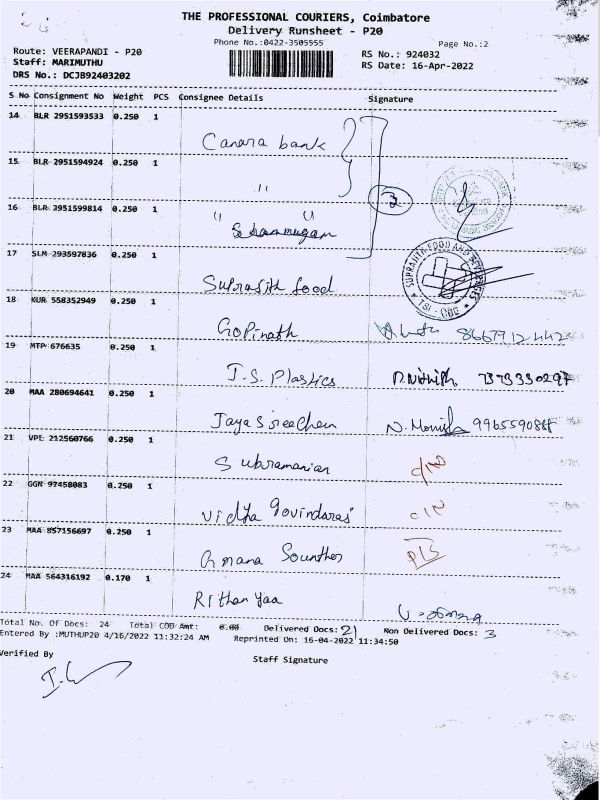 THE PROFESSIONAL COURIERS, Coimbatore
Delivery Runsheet - P20
Phone No.:0422-3505555
Page No.:2
Route: VEERAPANDI - P20
Staff: MARIMUTHU
DRS No.: DCJB92403202
RS No.: 924032
RS Date: 16-Apr-2022
S No Consignment No Weight PCS Consignee Details Signature
14 BLR 2951593533 0.250 1
Canara bank
15 BLR 2951594924 0.250 1
"
3
16 BLR 2951599814 0.250 1
" "
Shanmugam
17 SLM 293597836 0.250 1
Suprajith food
SUPRAJITH FOOD AND BEVERAGES
TSI - CBE
18 KUR 558352949 0.250 1
Gopinath 8667912442
19 MTP 676635 0.250 1
J.S. Plastics 7373330297
20 MAA 280694641 0.250 1
Jaya Sree Chem N. 9965590888
21 VPE 212560766 0.250 1
Subramanian
22 GGN 97458083 0.250 1
Vidya Govindaraj
23 MAA 857156697 0.250 1
Gnana Sounther
24 MAA 564316192 0.170 1
Rithanyaa
Total No. Of Docs: 24 Total COD Amt: 0.00 Delivered Docs: 21 Non Delivered Docs: 3
Entered By :MUTHUP20 4/16/2022 11:32:24 AM Reprinted On: 16-04-2022 11:34:50
Verified By
Staff Signature